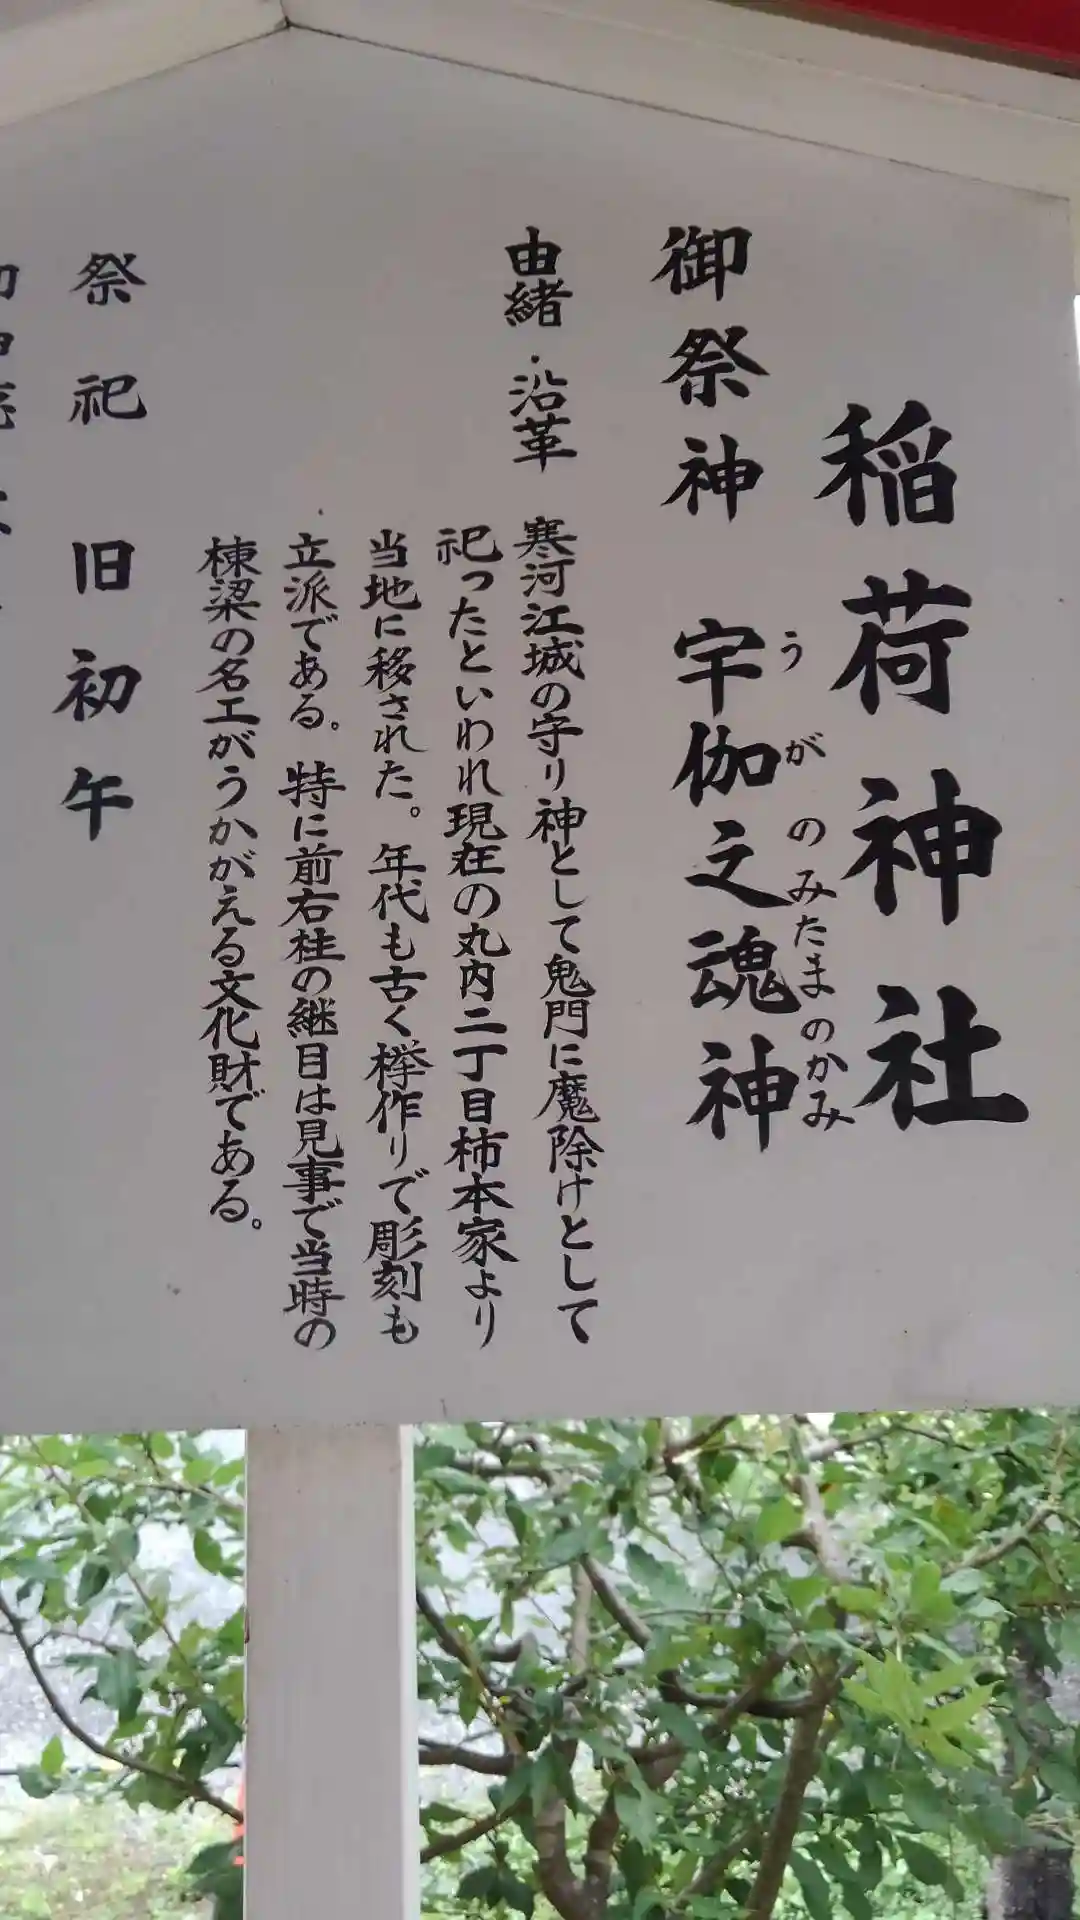 稲荷神社
御祭神 宇伽之魂神
うがのみたまのかみ
由緒・沿革 寒河江城の守り神として鬼門に魔除けとして
祀ったといわれ現在の丸内二丁目柿本家より
当地に移された。年代も古く欅作りで彫刻も
立派である。特に前右柱の継目は見事で当時の
棟梁の名工がうかがえる文化財である。
祭祀 旧初午